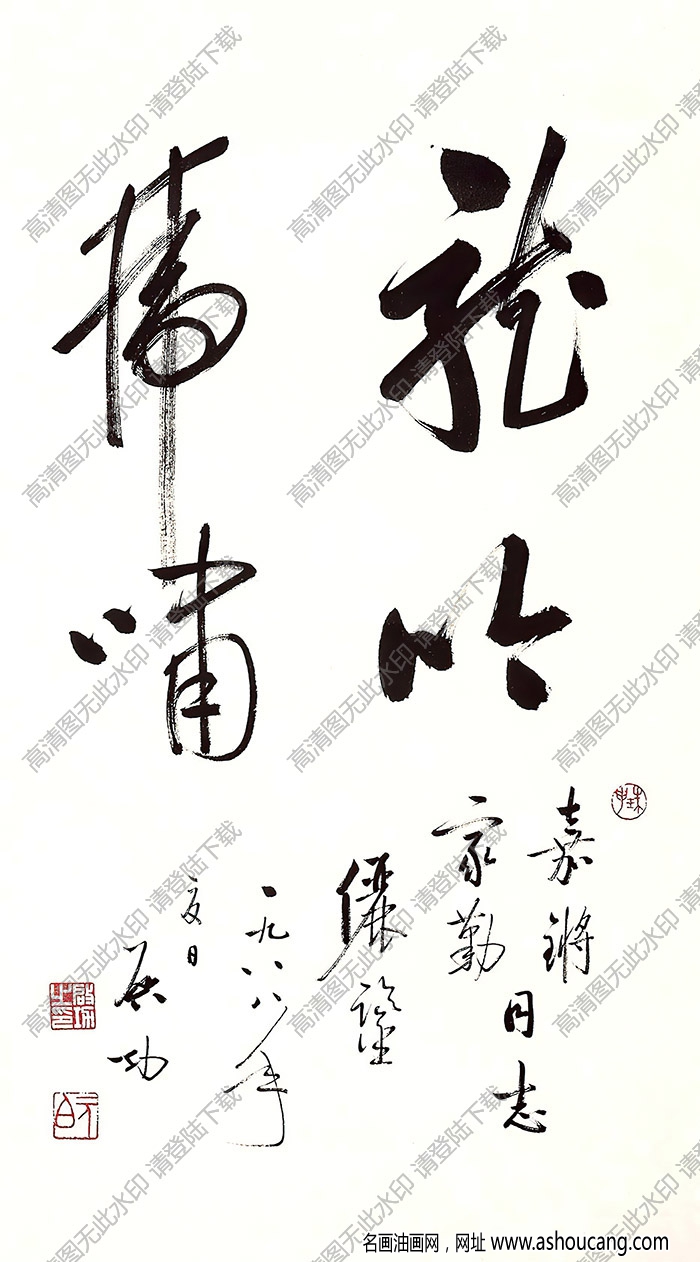 龍吟
虎嘯
嘉鏘
家勤
同志
儷鑒
一九八八年
夏日
启功
珠申
啟功之印
元白
高清图无此水印 请登陆下载
名画油画网，网址 www.ashoucang.com